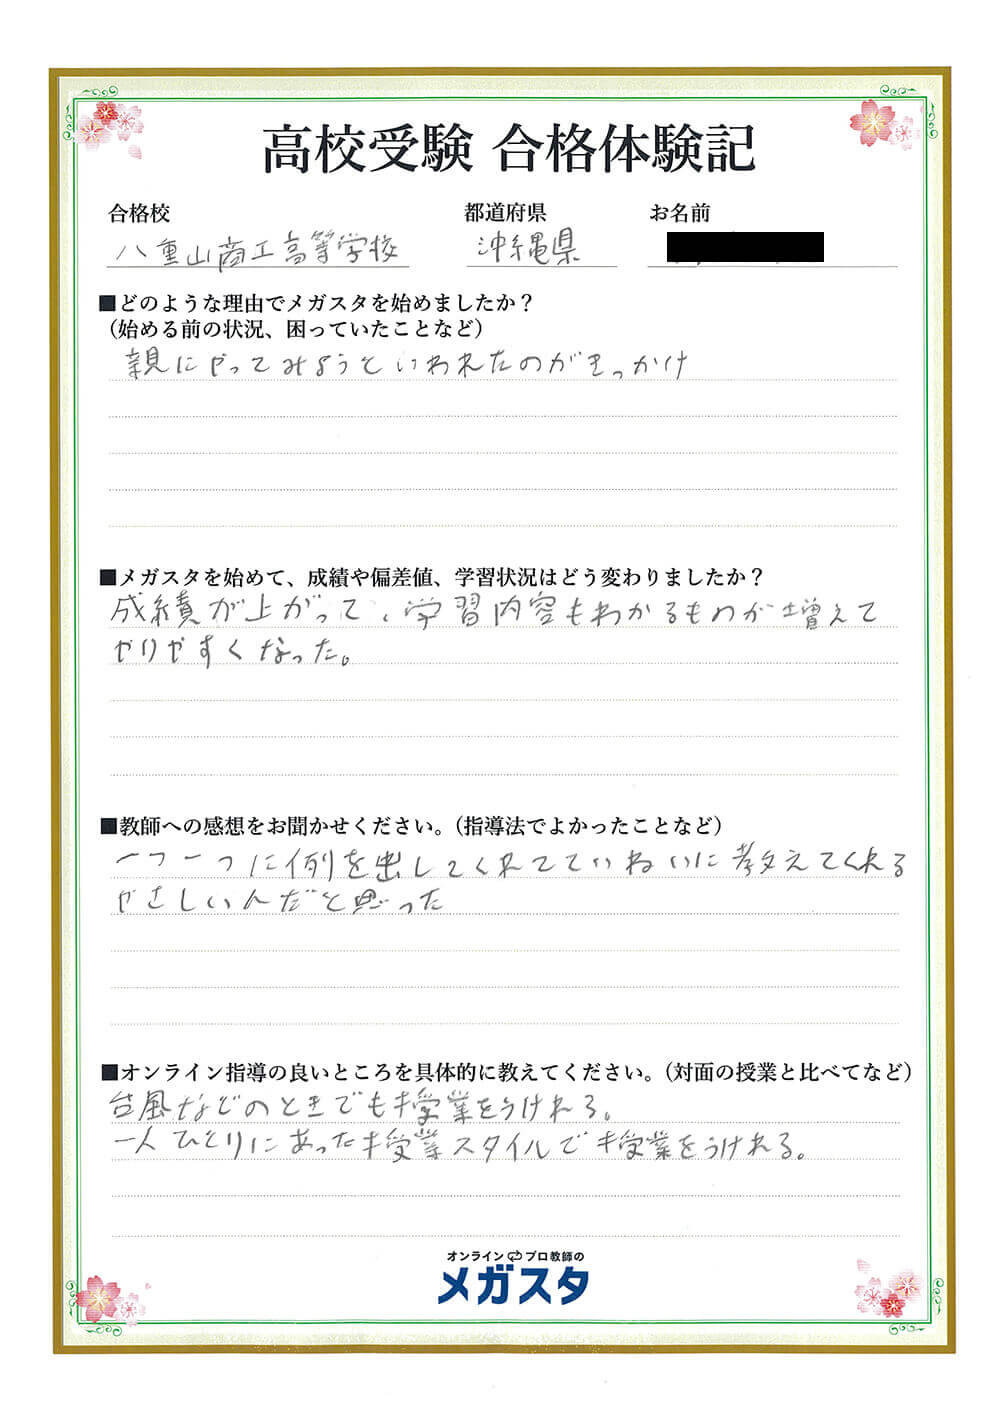 高校受験 合格体験記
合格校 都道府県 お名前
八重山商工高等学校 沖縄県
■どのような理由でメガスタを始めましたか？
（始める前の状況、困っていたことなど）
親にやってみようといわれたのがきっかけ
■メガスタを始めて、成績や偏差値、学習状況はどう変わりましたか？
成績が上がって、学習内容もわかるものが増えて
やりやすくなった。
■教師への感想をお聞かせください。（指導法でよかったことなど）
一つ一つに例を出してくれてていねいに教えてくれる
やさしいんだと思った
■オンライン指導の良いところを具体的に教えてください。（対面の授業と比べてなど）
台風などのときでも授業をうけれる。
一人ひとりにあった授業スタイルで授業をうけれる。
オンライン プロ教師の
メガスタ